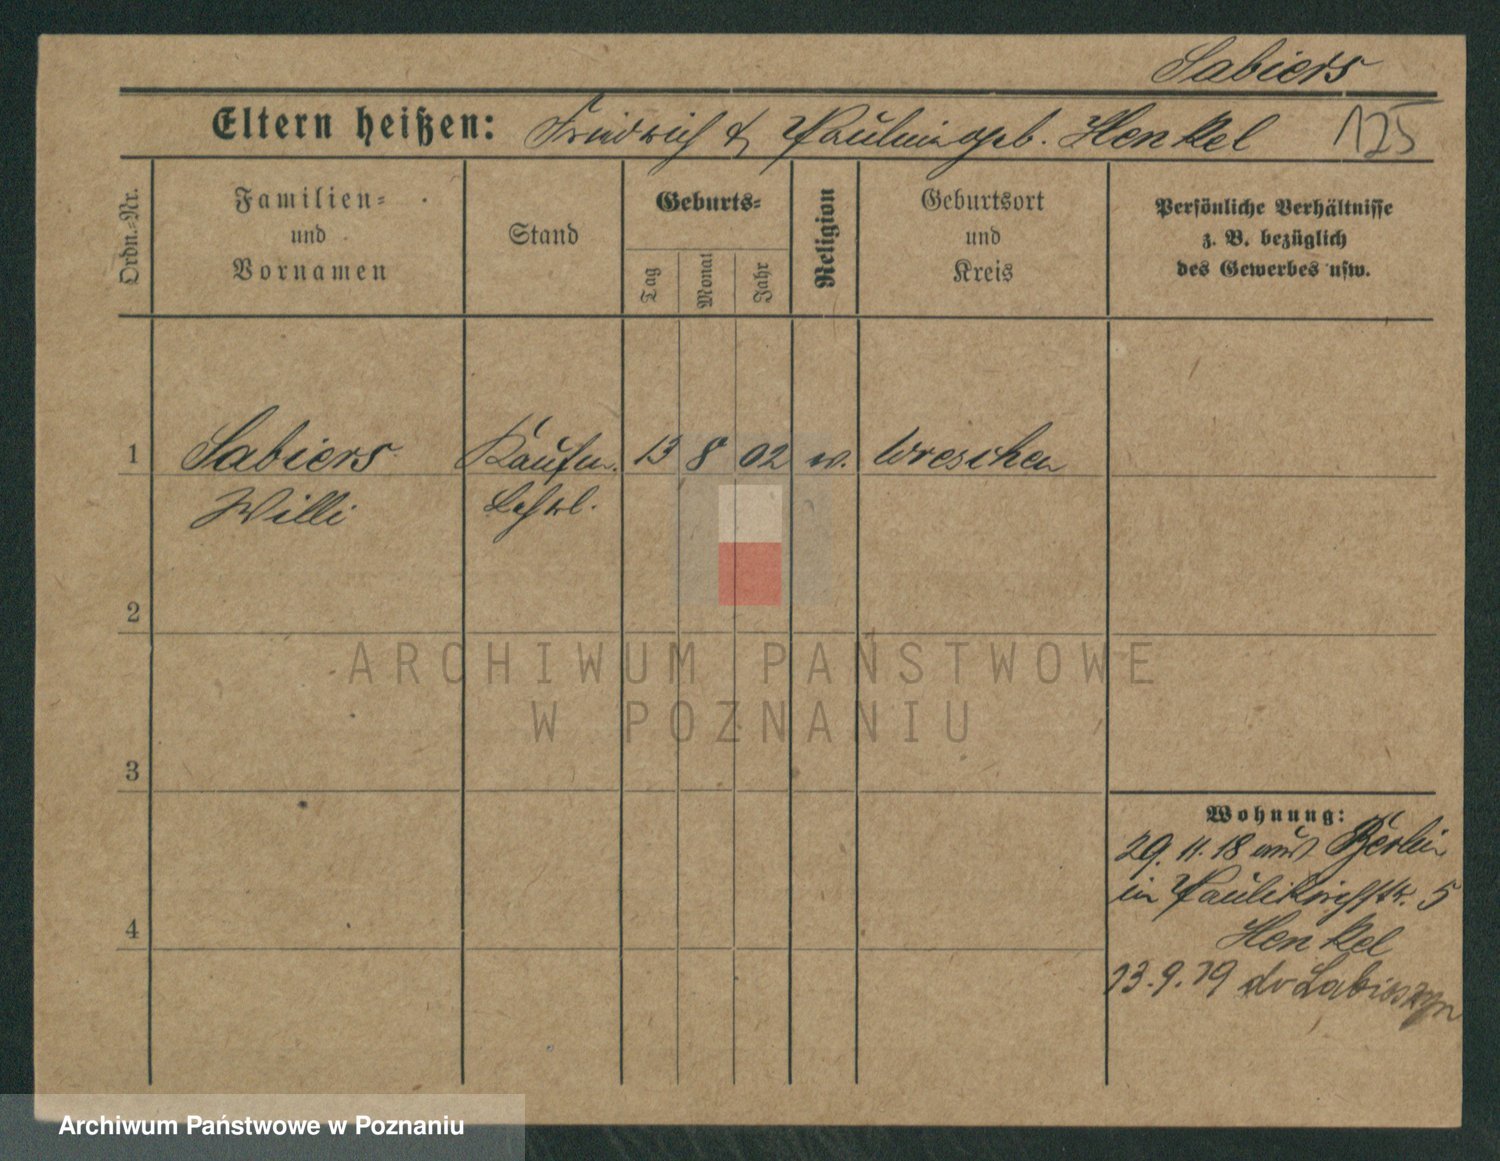 Sabiers
Eltern heißen: Friedrich & Paulin geb. Henkel 125
Ordn.-Nr.
Familien-
und
Vornamen
Stand
Geburts-
Tag
Monat
Jahr
Religion
Geburtsort
und
Kreis
Persönliche Verhältnisse
z. B. bezüglich
des Gewerbes usw.
1 Sabiers Kaufm. 13 8 02 ev. Wreschen
Willi Lehrl.
2
3
4
ARCHIWUM PAŃSTWOWE
W POZNANIU
Wohnung:
29. 11. 18 aus Berlin
in Paulikirchstr. 5
Henkel
13. 9. 19 Labiszyn
Archiwum Państwowe w Poznaniu